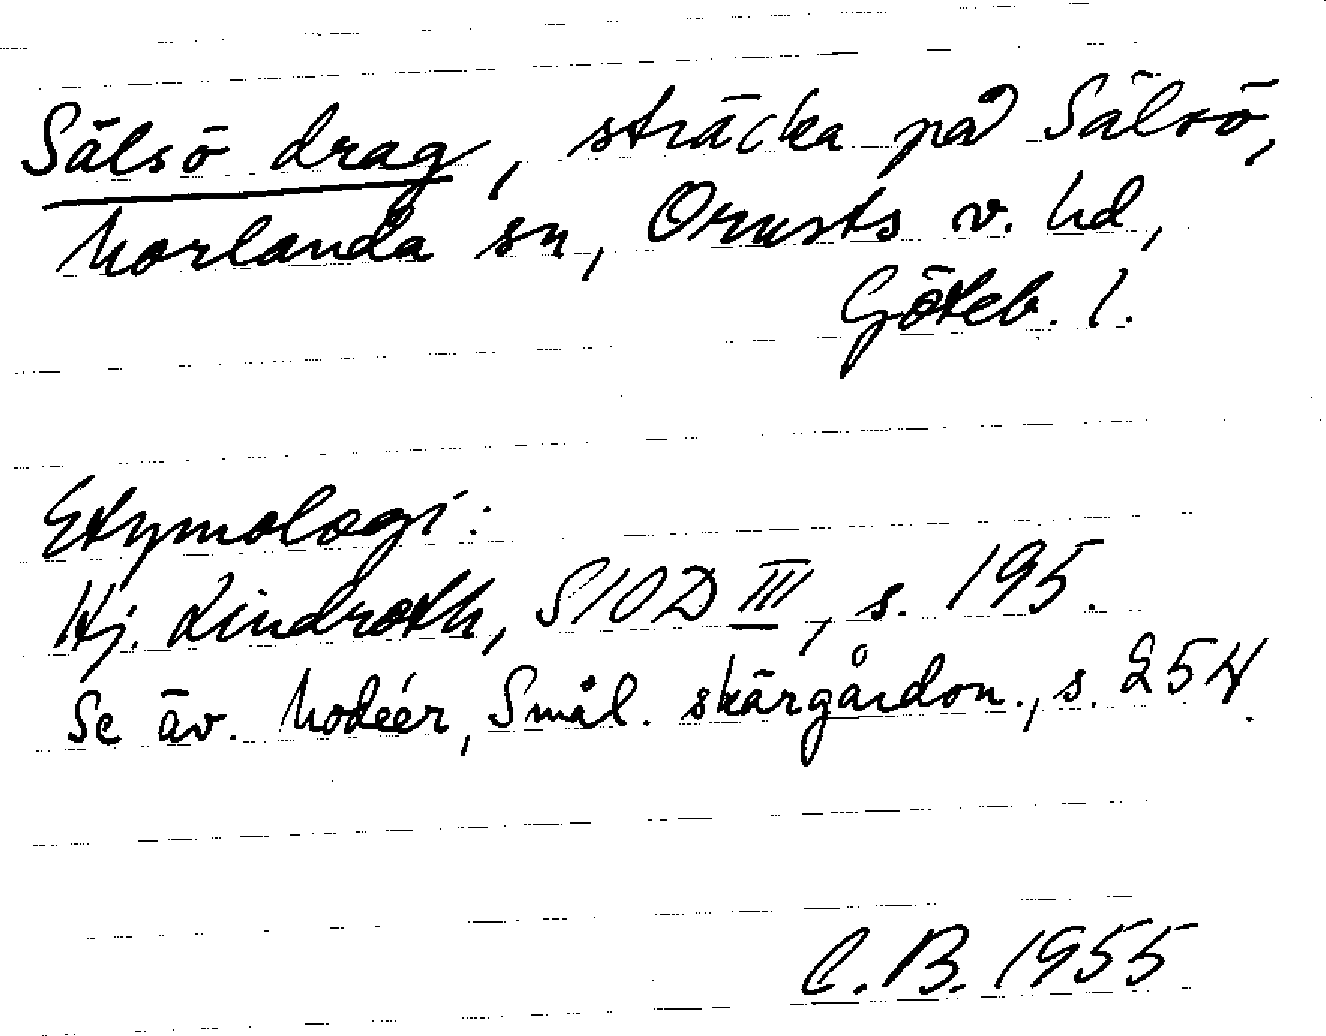 Sälsö drag, sträcka på Sälsö,
Morlanda sn, Orusts v. hd,
Göteb. l.
Etymologi:
Hj. Lindroth, SIOD III, s. 195.
Se äv. Modéer, Smål. skärgårdon., s. 254.
C. B. 1955